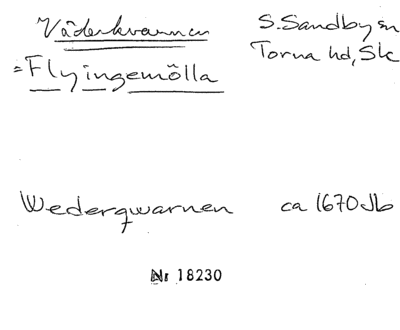 Väderkvarnen S. Sandby sn
= Flyingemölla Torna hd, Sk
Wederqwarnen ca 1670 Jb
Nr 18230